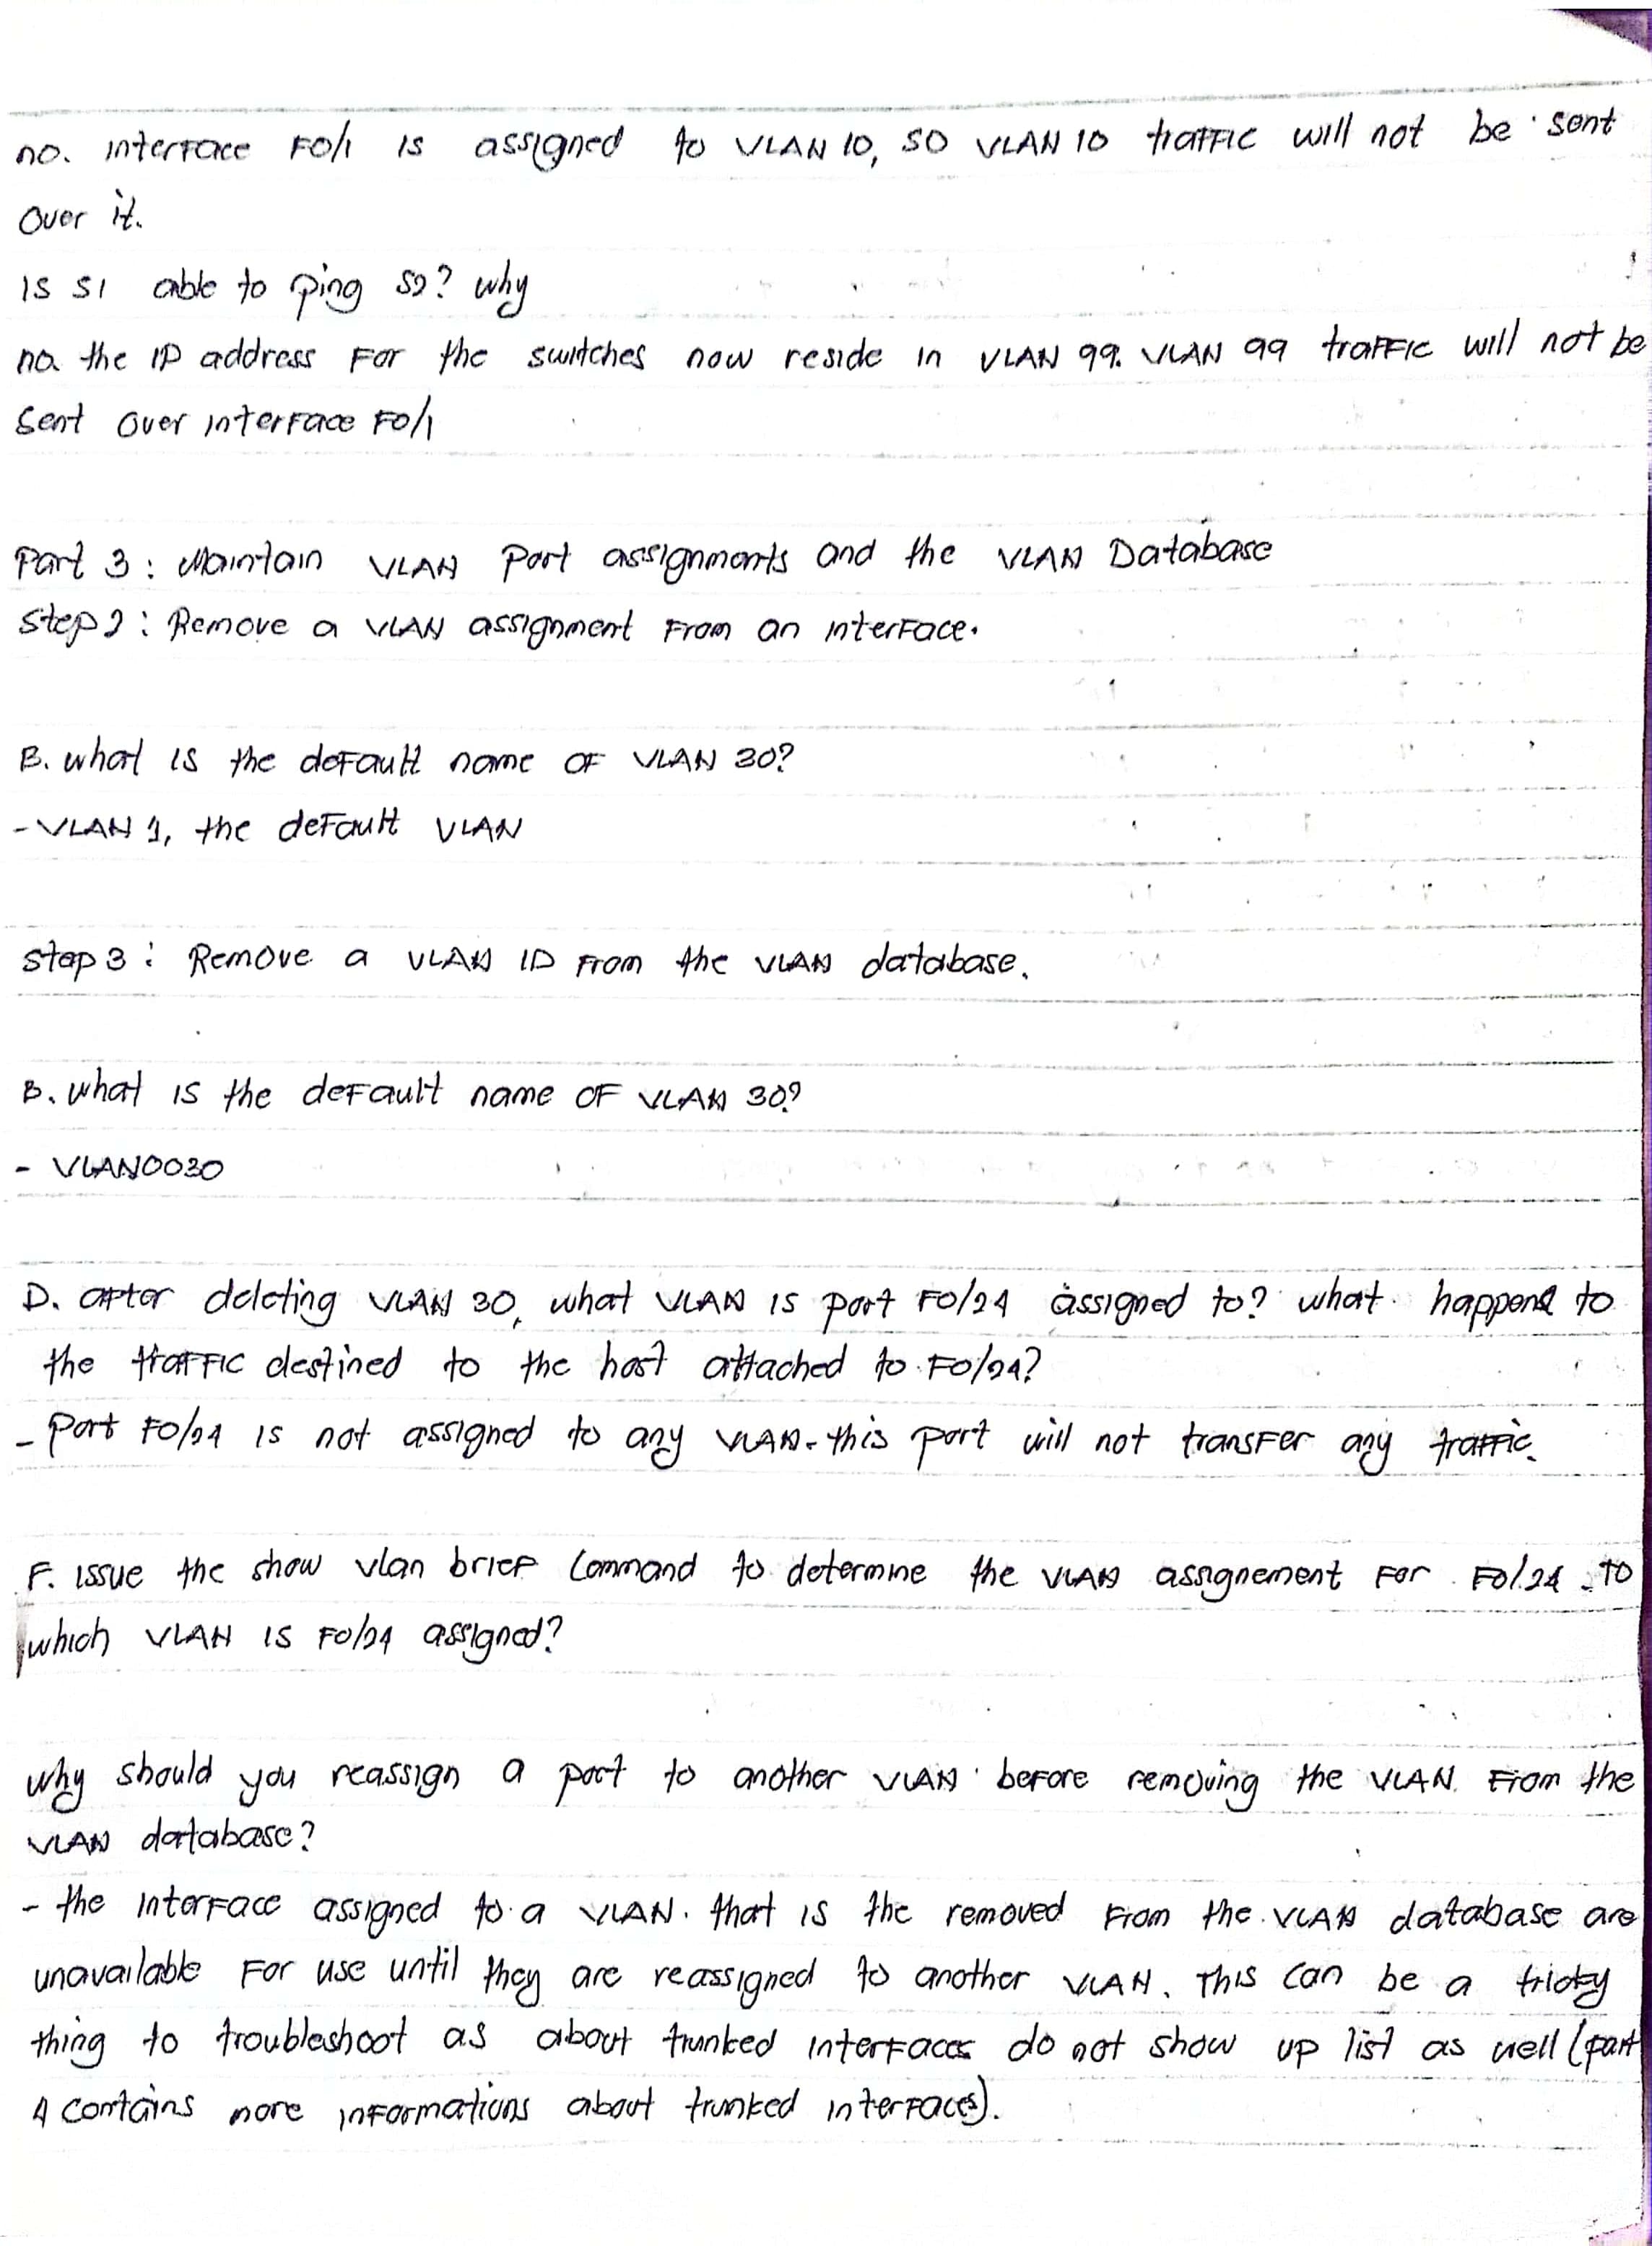 no. interface F0/1 is assigned to VLAN 10, so VLAN 10 traffic will not be sent
over it.
Is S1 able to ping S2? why
no. the IP address for the switches now reside in VLAN 99. VLAN 99 traffic will not be
sent over interface F0/1
Part 3 : Maintain VLAN Port assignments and the VLAN Database
Step 2 : Remove a VLAN assignment from an interface.
B. what is the default name of VLAN 30?
- VLAN 1, the default VLAN
Step 3 : Remove a VLAN ID from the VLAN database.
B. what is the default name of VLAN 30?
- VLAN0030
D. after deleting VLAN 30, what VLAN is port F0/24 assigned to? what happens to
the traffic destined to the host attached to F0/24?
- Port F0/24 is not assigned to any VLAN. this port will not transfer any traffic.
F. issue the show vlan brief command to determine the VLAN assignement for F0/24. to
which VLAN is F0/24 assigned?
why should you reassign a port to another VLAN before removing the VLAN from the
VLAN database?
- the interface assigned to a VLAN. that is the removed from the VLAN database are
unavailable for use until they are reassigned to another VLAN. This can be a tricky
thing to troubleshoot as about trunked interfaces do not show up list as well (part
4 contains more informations about trunked interfaces).